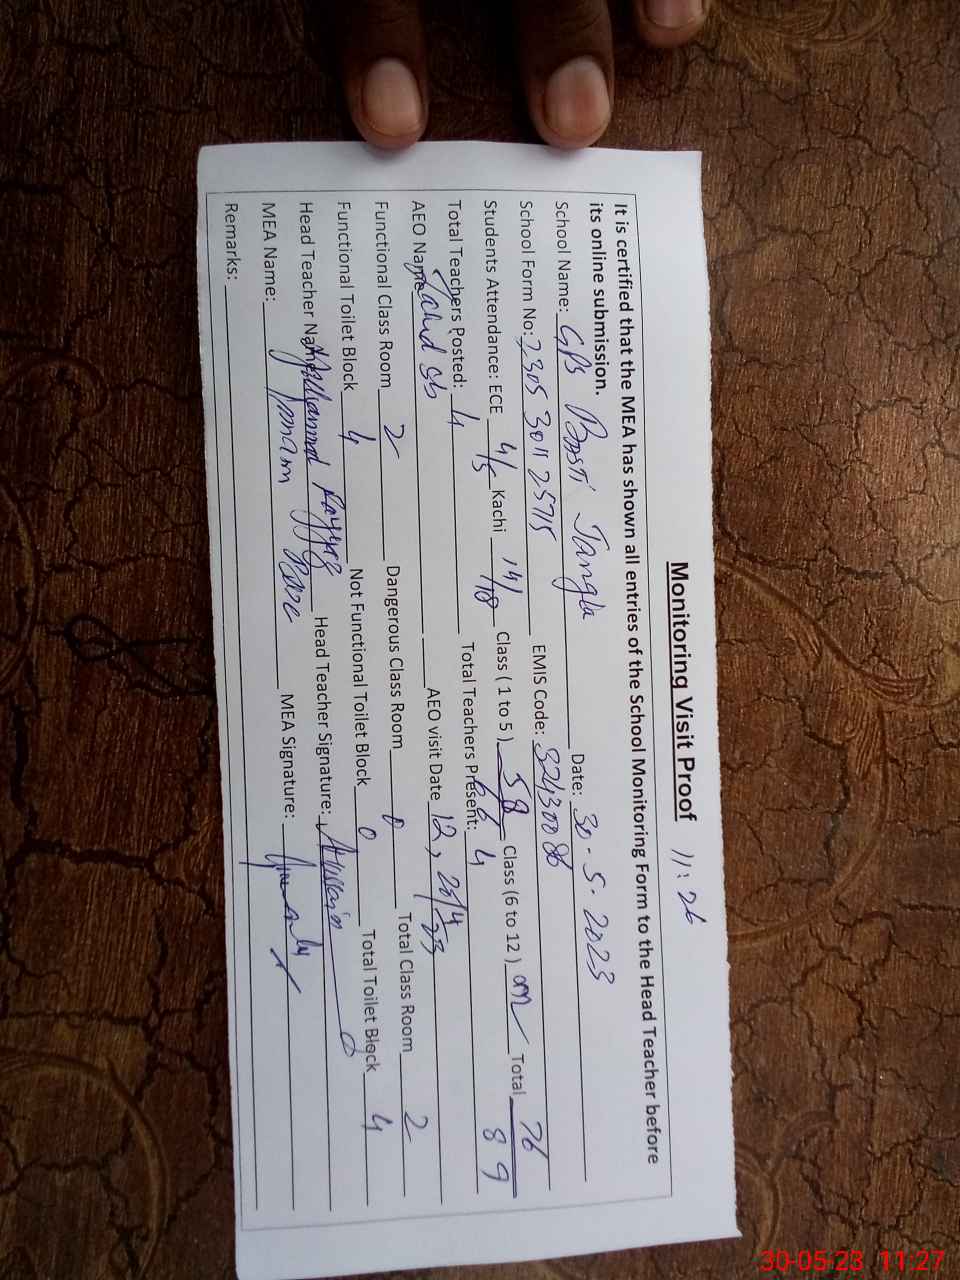 Monitoring Visit Proof 11:26
It is certified that the MEA has shown all entries of the School Monitoring Form to the Head Teacher before
its online submission.
School Name: GPS Basti Jangla Date: 30-5-2023
School Form No: 2305 3011 25715 EMIS Code: 32430086
Students Attendance: ECE 4/5 Kachi 14/18 Class (1 to 5) 58/66 Class (6 to 12) Total 76/89
Total Teachers Posted: 4 Total Teachers Present: 4
AEO Name AEO visit Date 12, 28/4/23
Functional Class Room 2 Dangerous Class Room 0 Total Class Room 2
Functional Toilet Block 4 Not Functional Toilet Block 0 Total Toilet Block 4
Head Teacher Name: Muhammad Head Teacher Signature:
MEA Name: MEA Signature:
Remarks:
30-05-23 11:27